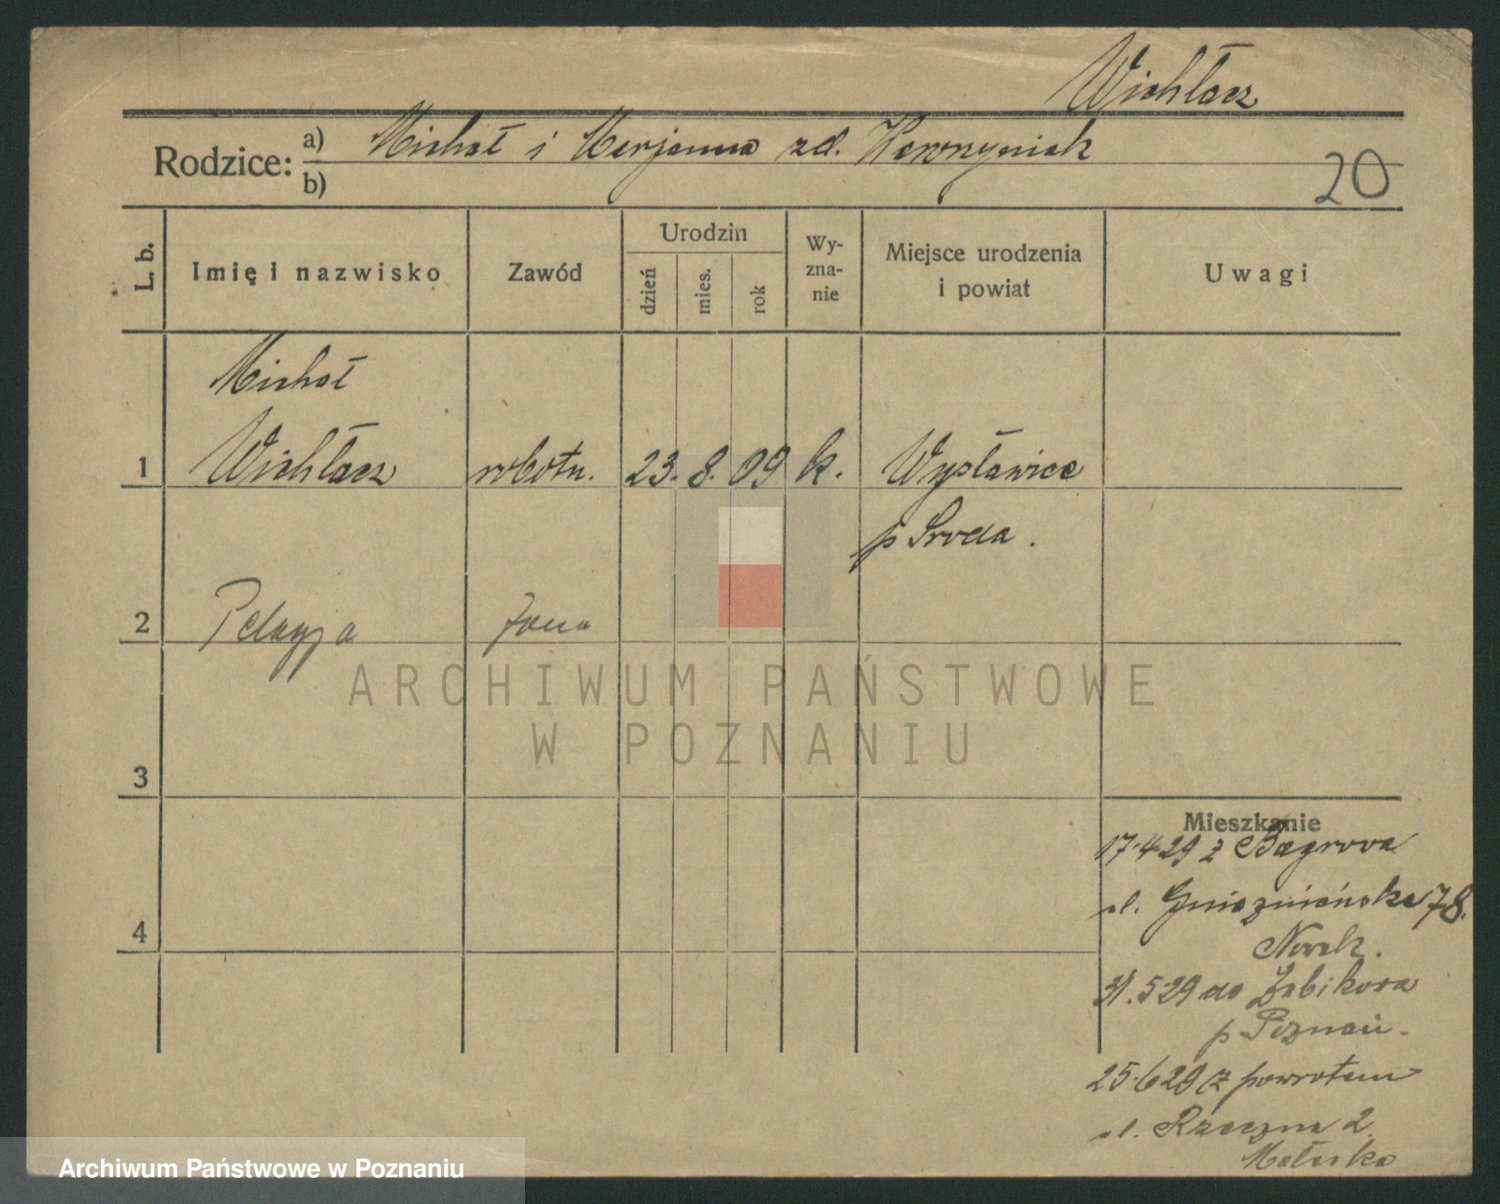 Wichłacz
Rodzice: a) Michał i Marjanna zd. Wawrzyniak
b)
20
L. b.
Imię i nazwisko
Zawód
Urodzin
dzień
mies.
rok
Wy-
zna-
nie
Miejsce urodzenia
i powiat
Uwagi
Michał
1 Wichłacz robotn. 23. 8. 09 k. Wysławice
p Środa.
2 Pelagja żona
3
Mieszkanie
17.4.29 z Bagrowa
ul. Gnieźnieńska 78.
4
Nowak.
31.5 29 do Żabikowa
p Poznań.
25.6 29 z powrotem
ul. Rzeczna 2.
ARCHIWUM PAŃSTWOWE
W POZNANIU
Archiwum Państwowe w Poznaniu